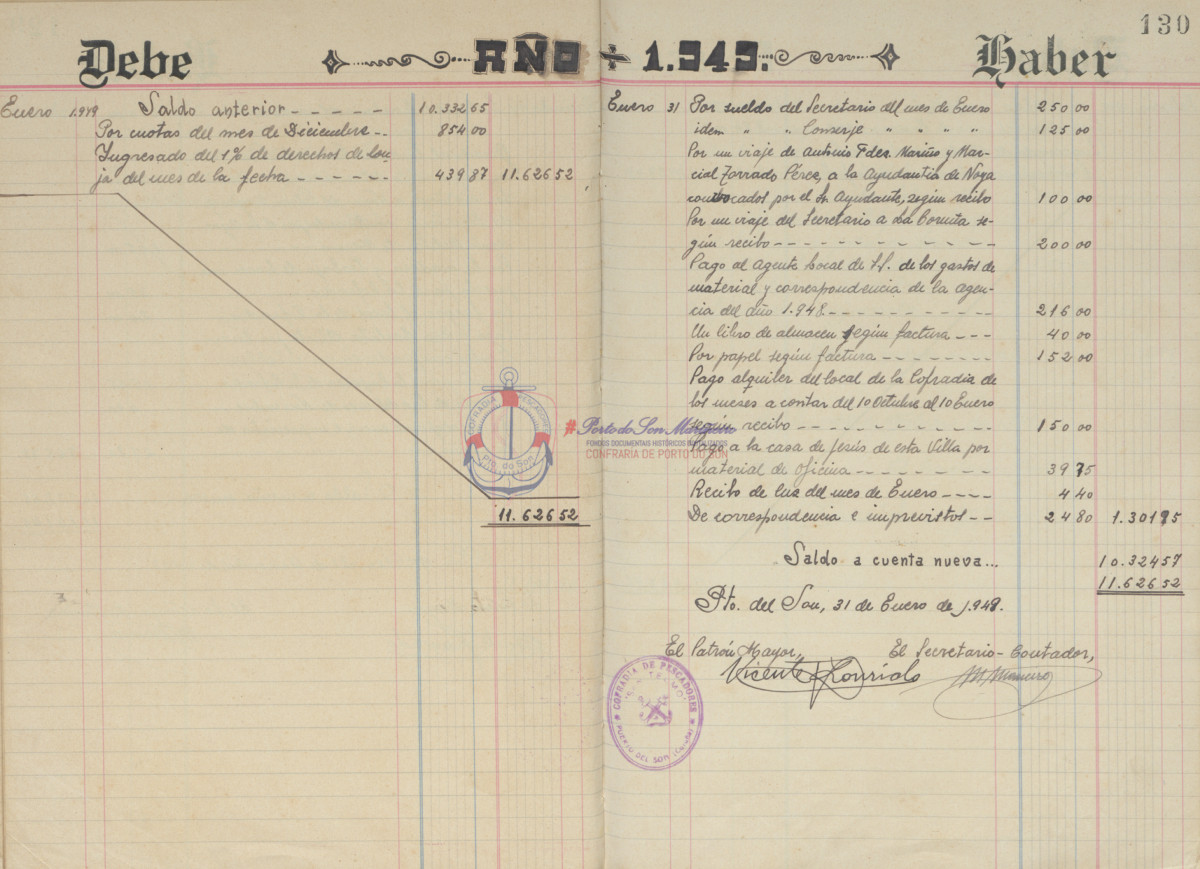 130
Debe AÑO 1.949. Haber
Enero 1949 Saldo anterior 10.332 65
Por cuotas del mes de Diciembre 854 00
Ingresado del 1% de derechos de lon-
ja del mes de la fecha 439 87 11.626 52
11.626 52
Enero 31 Por sueldo del Secretario del mes de Enero 250 00
idem " " Conserje " " " " 125 00
Por un viaje de Antonio Fdez. Mariño y Mar-
cial Zorrado Pérez, a la Ayudantía de Noya
convocados por el Sr. Ayudante, según recibo 100 00
Por un viaje del Secretario a La Coruña se-
gún recibo 200 00
Pago al Agente Local de de los gastos de
material y correspondencia de la agen-
cia del año 1.948 216 00
Un libro de almacen según factura 40 00
Por papel según factura 152 00
Pago alquiler del local de la Cofradia de
los meses a contar del 10 Octubre al 10 Enero
según recibo 150 00
Pago a la casa de Jesús de esta Villa por
material de oficina 39 75
Recibo de luz del mes de Enero 4 40
De correspondencia e imprevistos 24 80 1.301 95
Saldo a cuenta nueva... 10.324 57
11.626 52
Pto. del Son, 31 de Enero de 1.949.
El Patrón Mayor, El Secretario-Contador,
Vicente
COFRADIA DE PESCADORES
PUERTO DEL SON
COFRADIA PESCADORES
Pto. do Son
#Porto do Son Mariñeiro
FONDOS DOCUMENTAIS HISTÓRICOS DIXITALIZADOS
CONFRARÍA DE PORTO DO SON